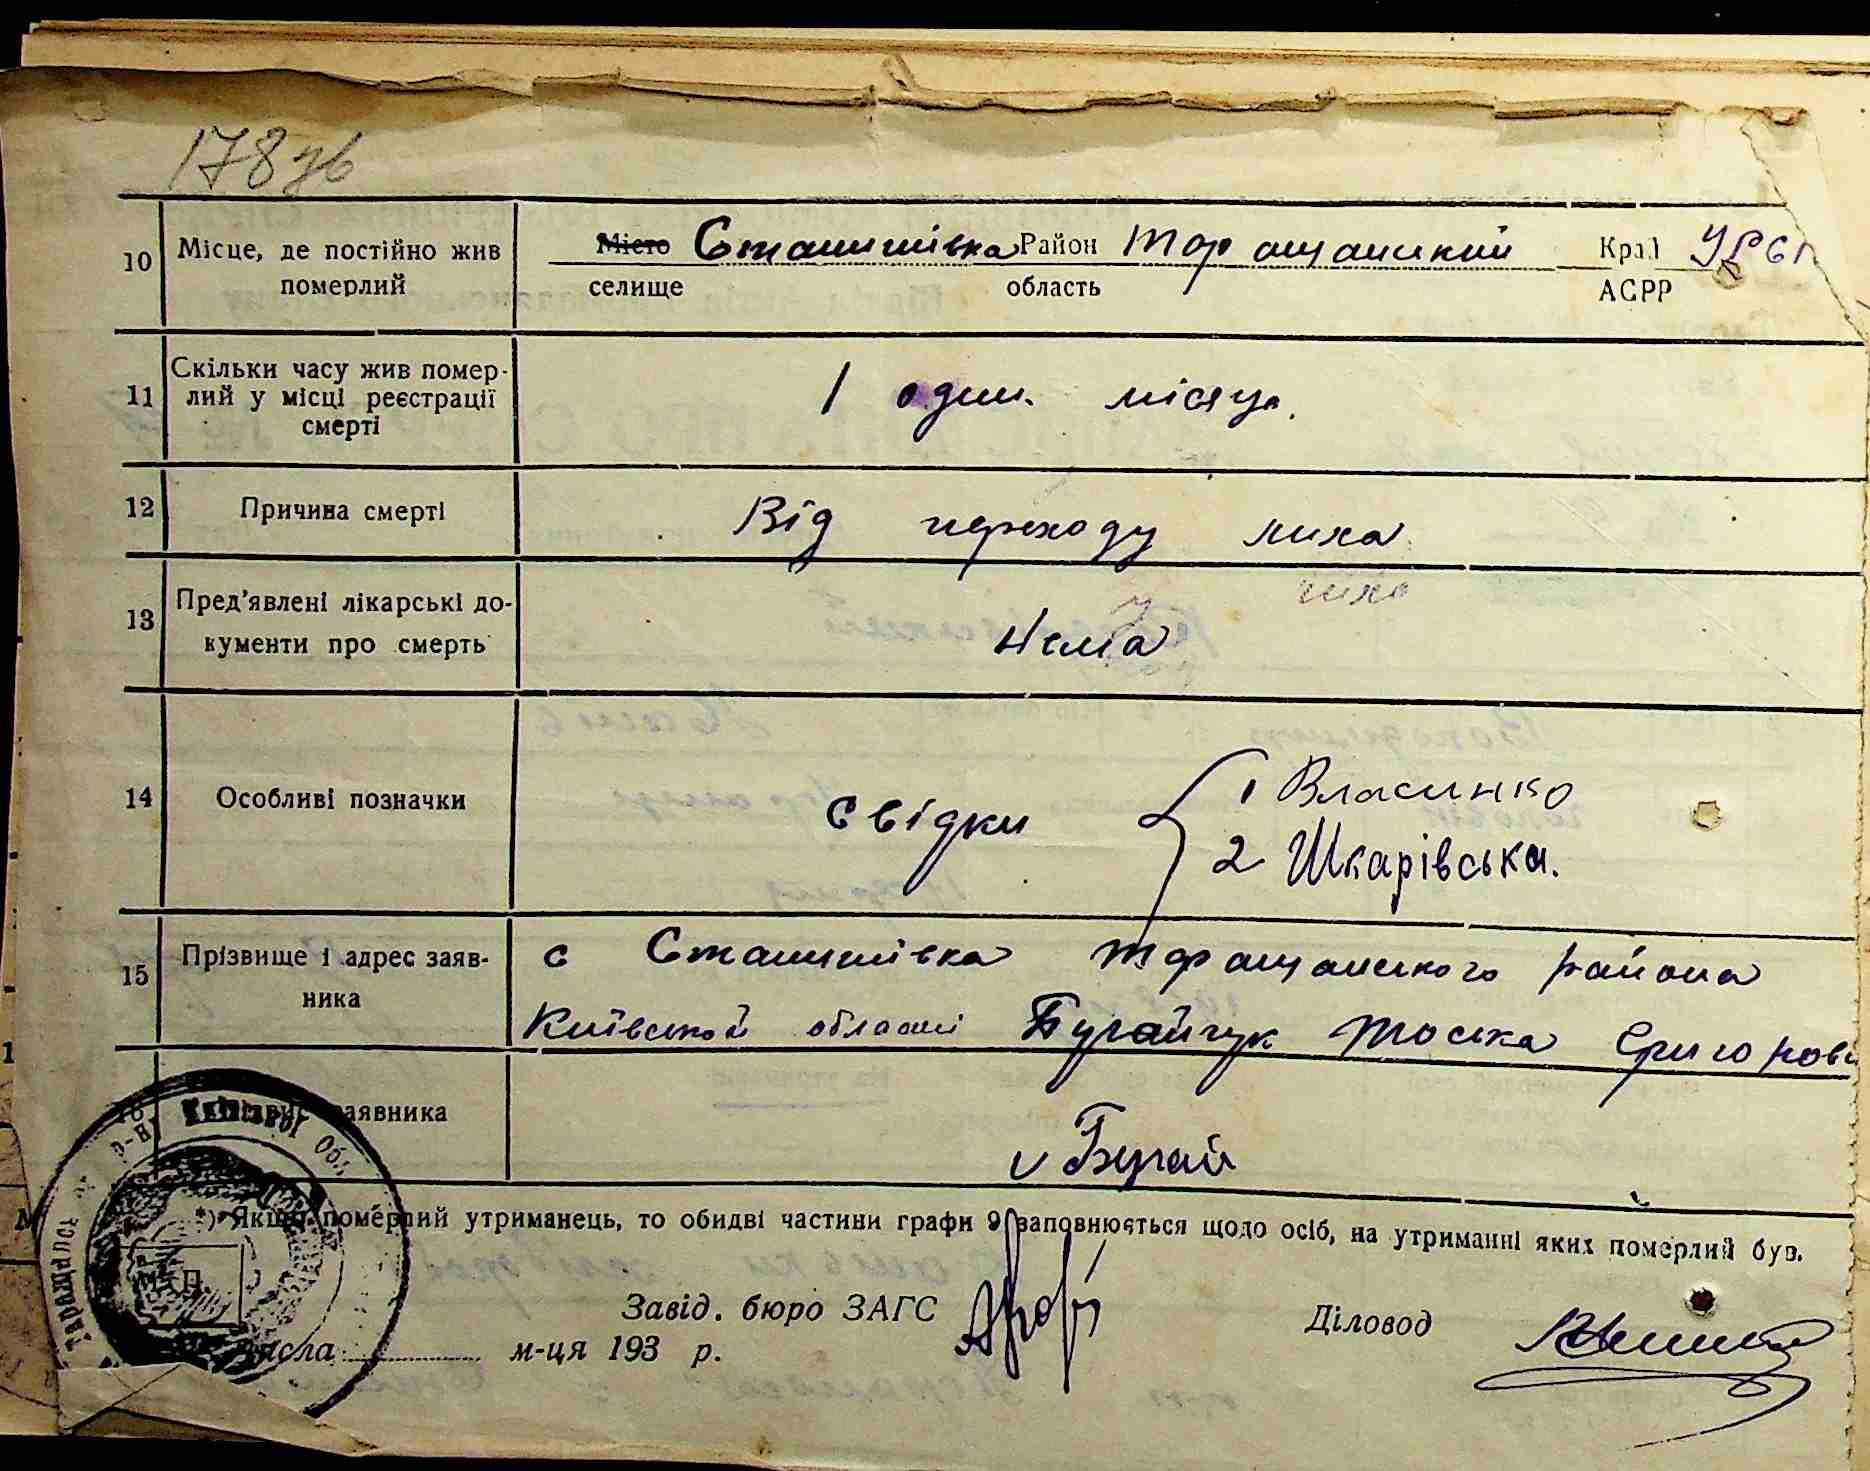 178 зв
10 Місце, де постійно жив померлий Місто Станишівка Район Торащанский Край УРСР
селище область АСРР
11 Скільки часу жив помер-
лий у місці реєстрації
смерті 1 один. місяць.
12 Причина смерті Від переходу лиха
лихо
13 Пред'явлені лікарські до-
кументи про смерть Нема
14 Особливі позначки свідки 1 Власинко
2 Шкарівська.
15 Прізвище і адрес заяв-
ника с Станишівка Торащанского района
Київської області Бугайчук Тоська Григоров
заявника
Бугай
*) Якщо померлий утриманець, то обидві частини графи 9 заповнюється щодо осіб, на утриманні яких померлий був.
Завід. бюро ЗАГС Діловод
числа м-ця 193 р.
р-ну Київської Обл.
М.П.